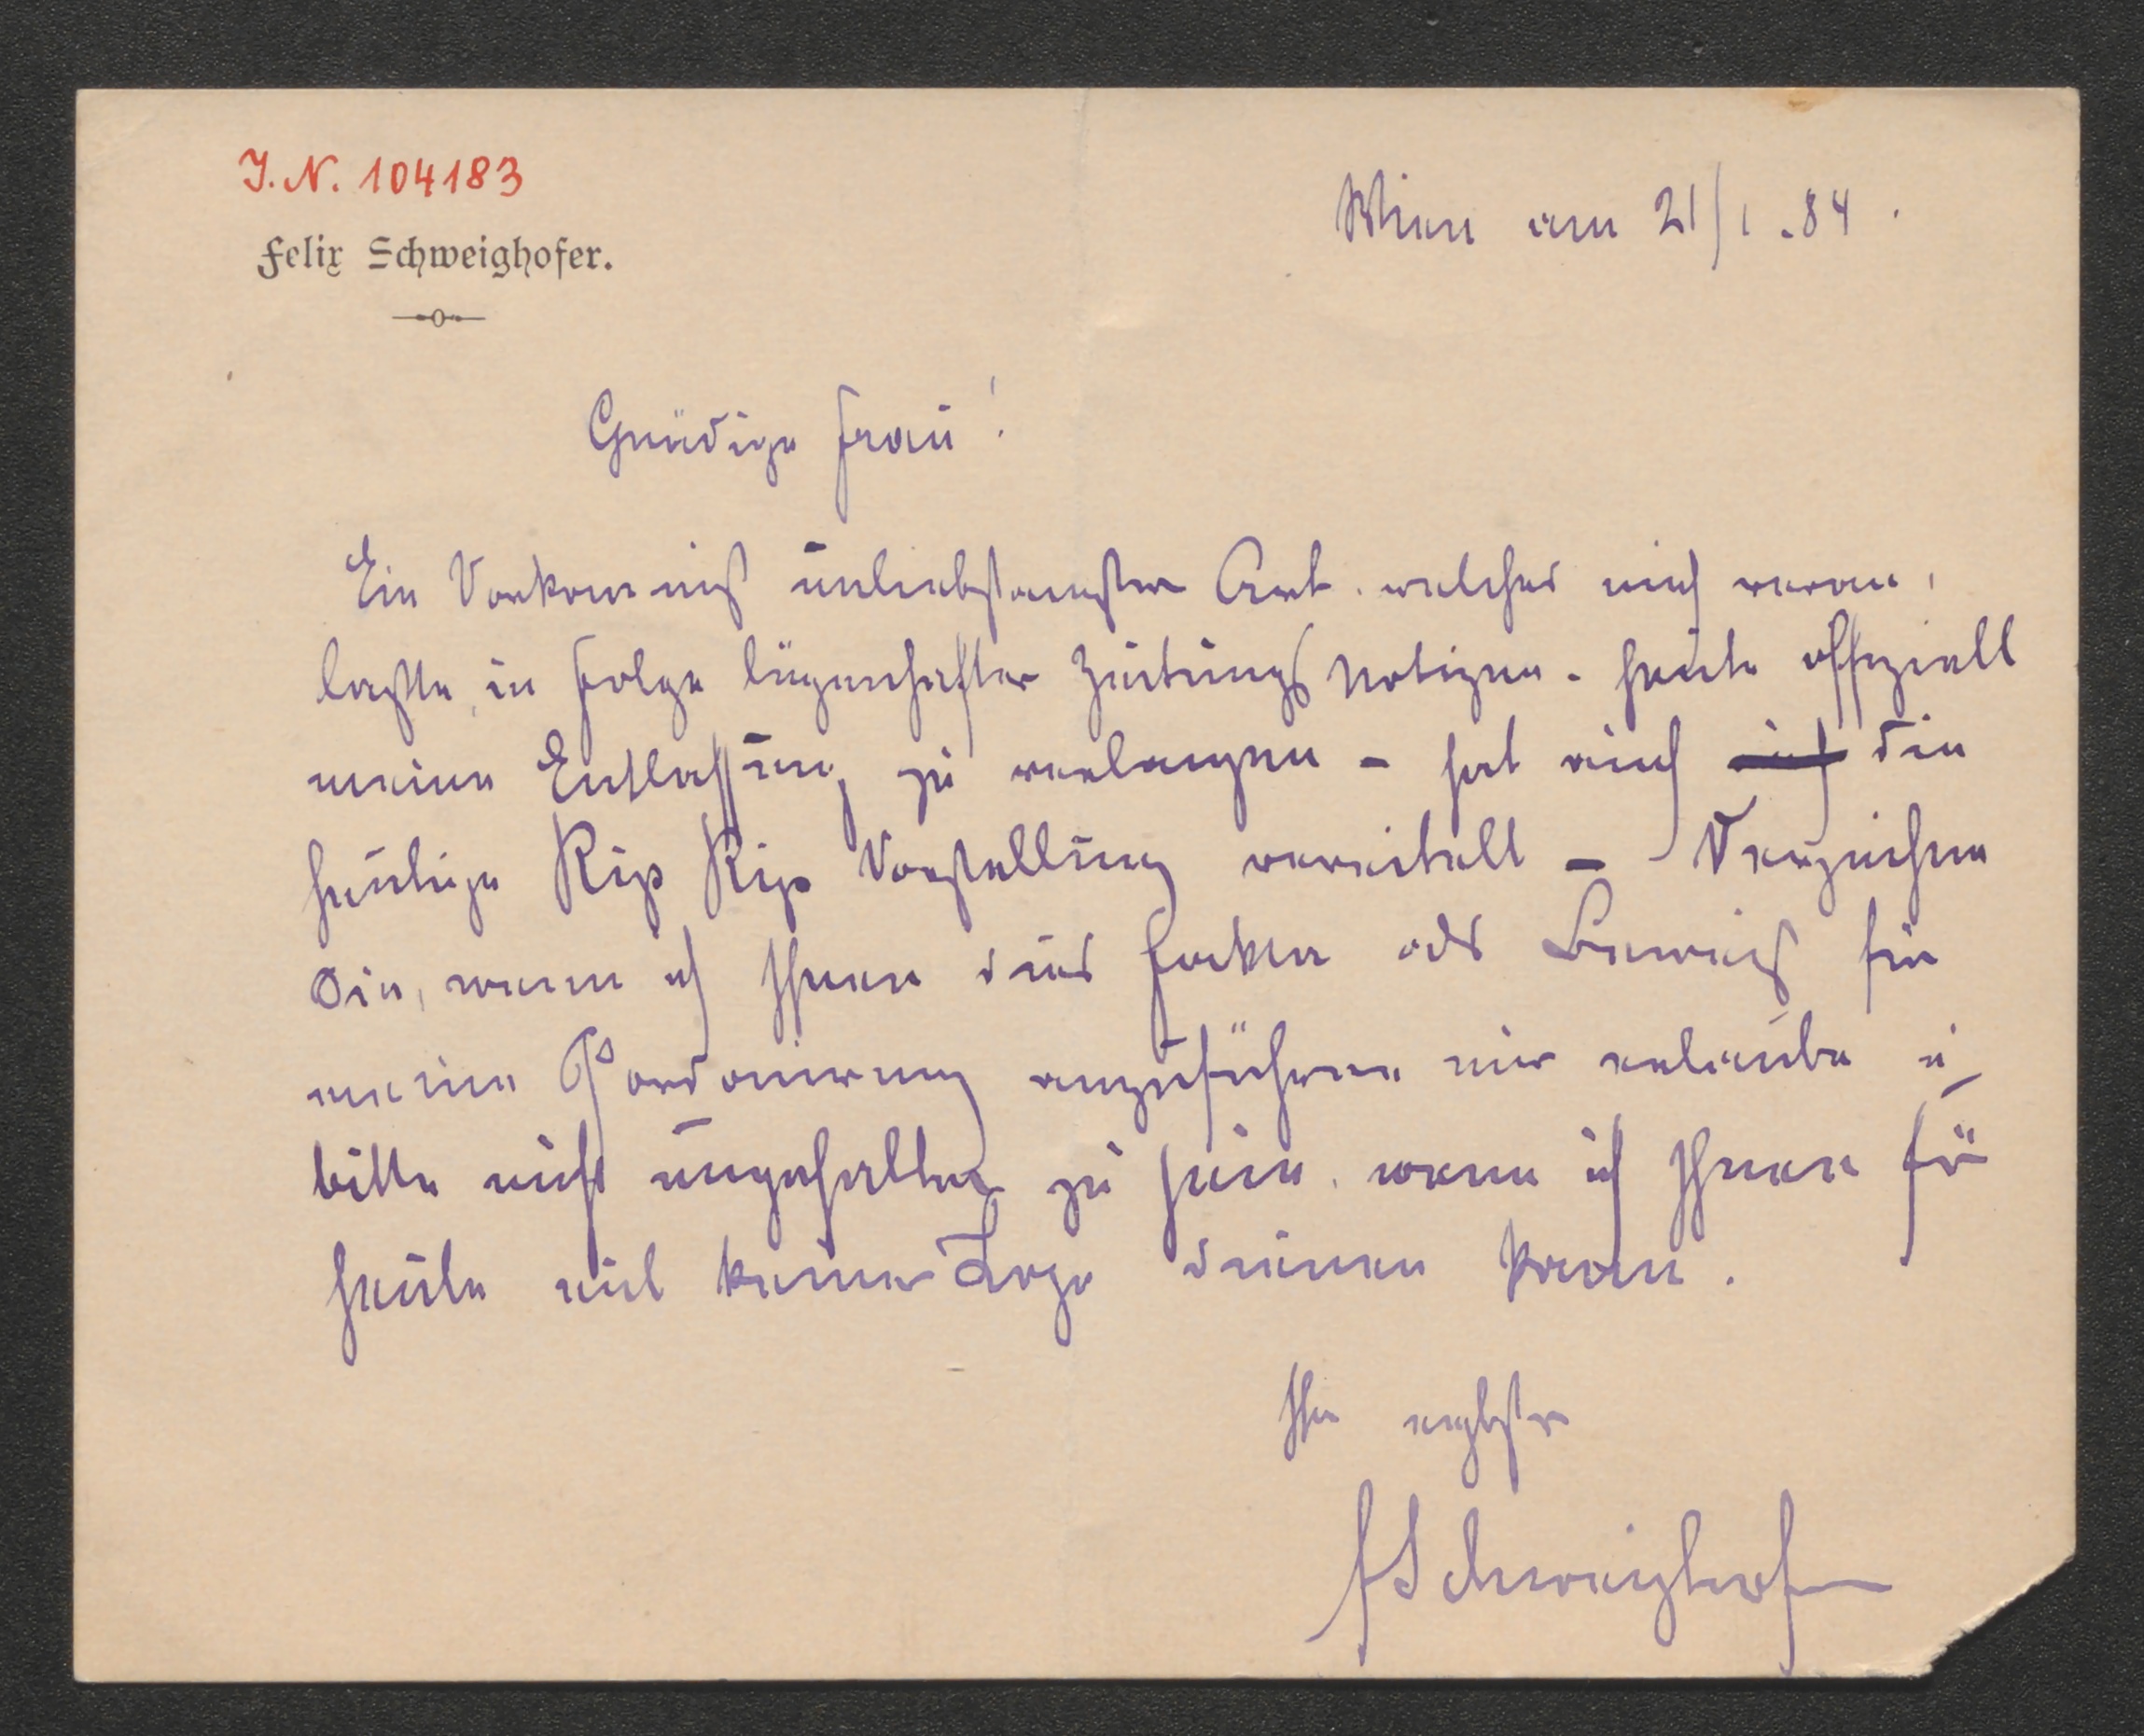 I.N. 104183
Felix Schweighofer.
Wien am 21/1.84.
Gnädige Frau!
Ein Vorkommniß unliebsamster Art, welches mich veran-
laßte, in Folge lügenhafter Zeitungs Notizen - heute offiziell
meine Entlassung zu verlangen - hat auch ich die
heutige Rip Rip Vorstellung vereitelt - Verzeihen
Sie, wenn ich Ihnen dies Faktum als Beweis für
meine Pardonirung anzuführen mir erlaube u
bitte nicht ungehalten zu sein, wenn ich Ihnen für
heute mit keiner Loge dienen kann.
Ihr ergbstr
FSchweighofer